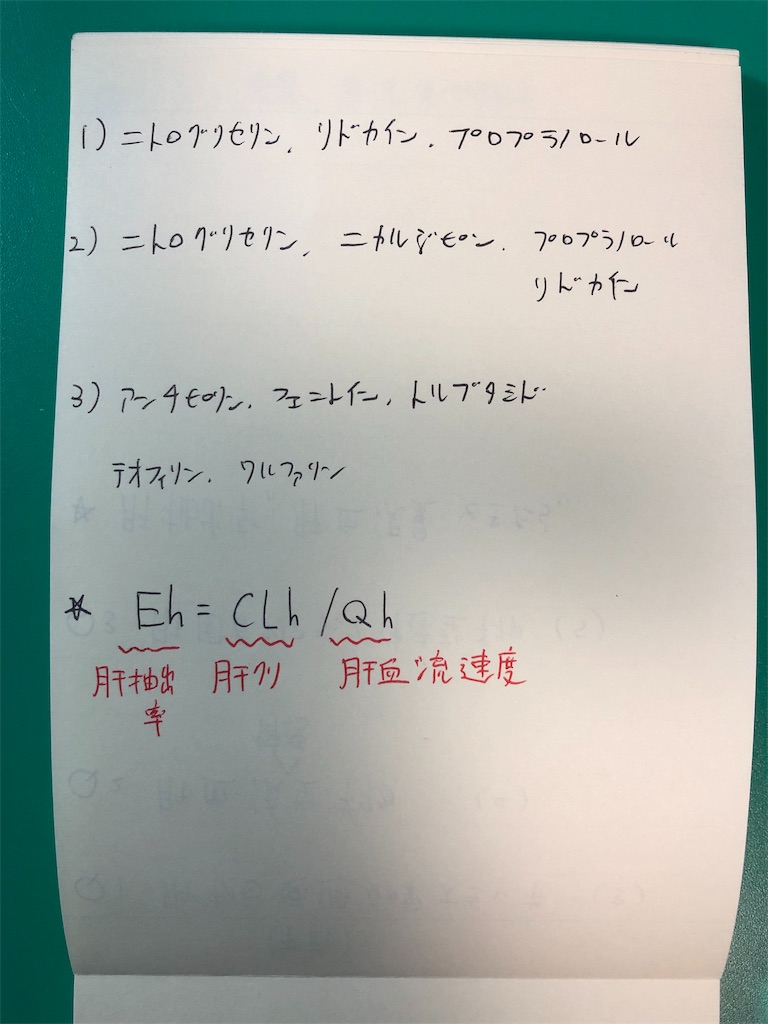 1) ニトログリセリン、リドカイン、プロプラノロール
2) ニトログリセリン、ニカルジピン、プロプラノロール
リドカイン
3) アンチピリン、フェニトイン、トルブタミド
テオフィリン、ワルファリン
☆ Eh = CLh / Qh
肝抽出 肝クリ 肝血流速度
率